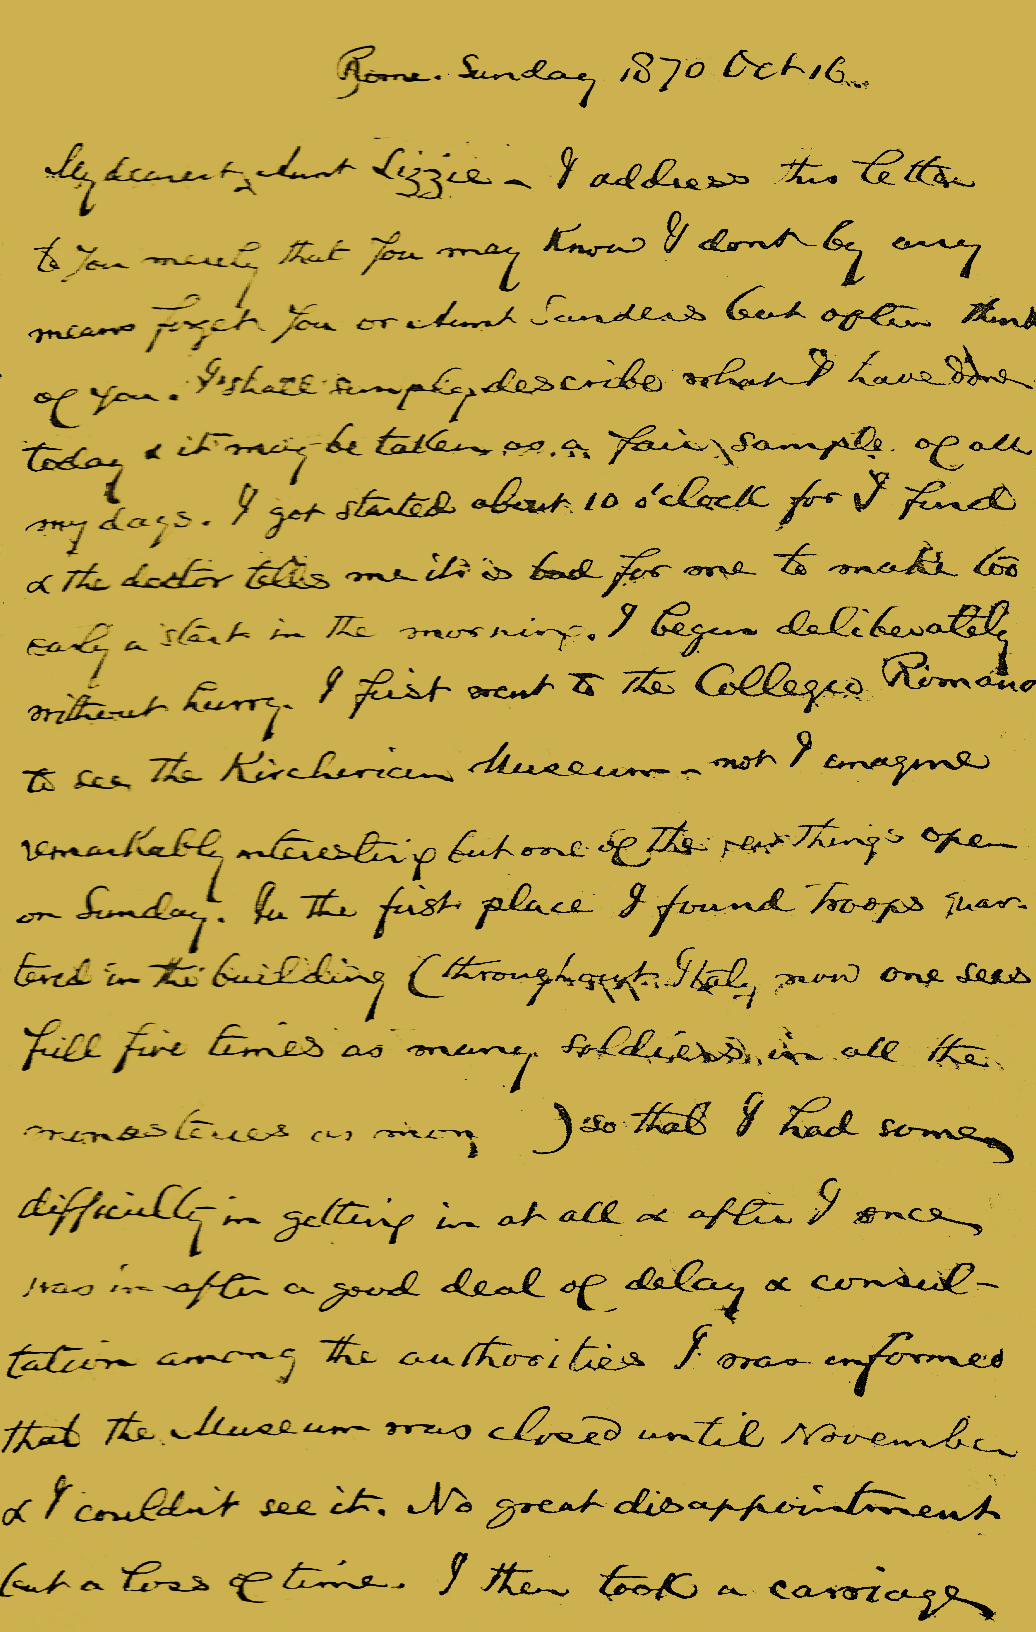 Rome. Sunday 1870 Oct 16
My dearest Aunt Lizzie - I address this letter
to you merely that you may know I dont by any
means forget you or Aunt Sanders but often think
of you. I shall simply describe what I have done
today & it may be taken as a fair sample of all
my days. I got started about 10 o'clock for I find
& the doctor tells me it is bad for me to make too
early a start in the morning. I began deliberately
without hurry. I first went to the Collegio Romano
to see the Kircherian Museum - not I imagine
remarkably interesting but one of the few things open
on Sunday. In the first place I found troops quar-
tered in the building (throughout Italy now one sees
full five times as many soldiers in all the
monasteries as monks) so that I had some
difficulty in getting in at all & after I once
was in after a good deal of delay & consul-
tation among the authorities I was informed
that the Museum was closed until November
& I couldn't see it. No great disappointment
but a loss of time. I then took a carriage